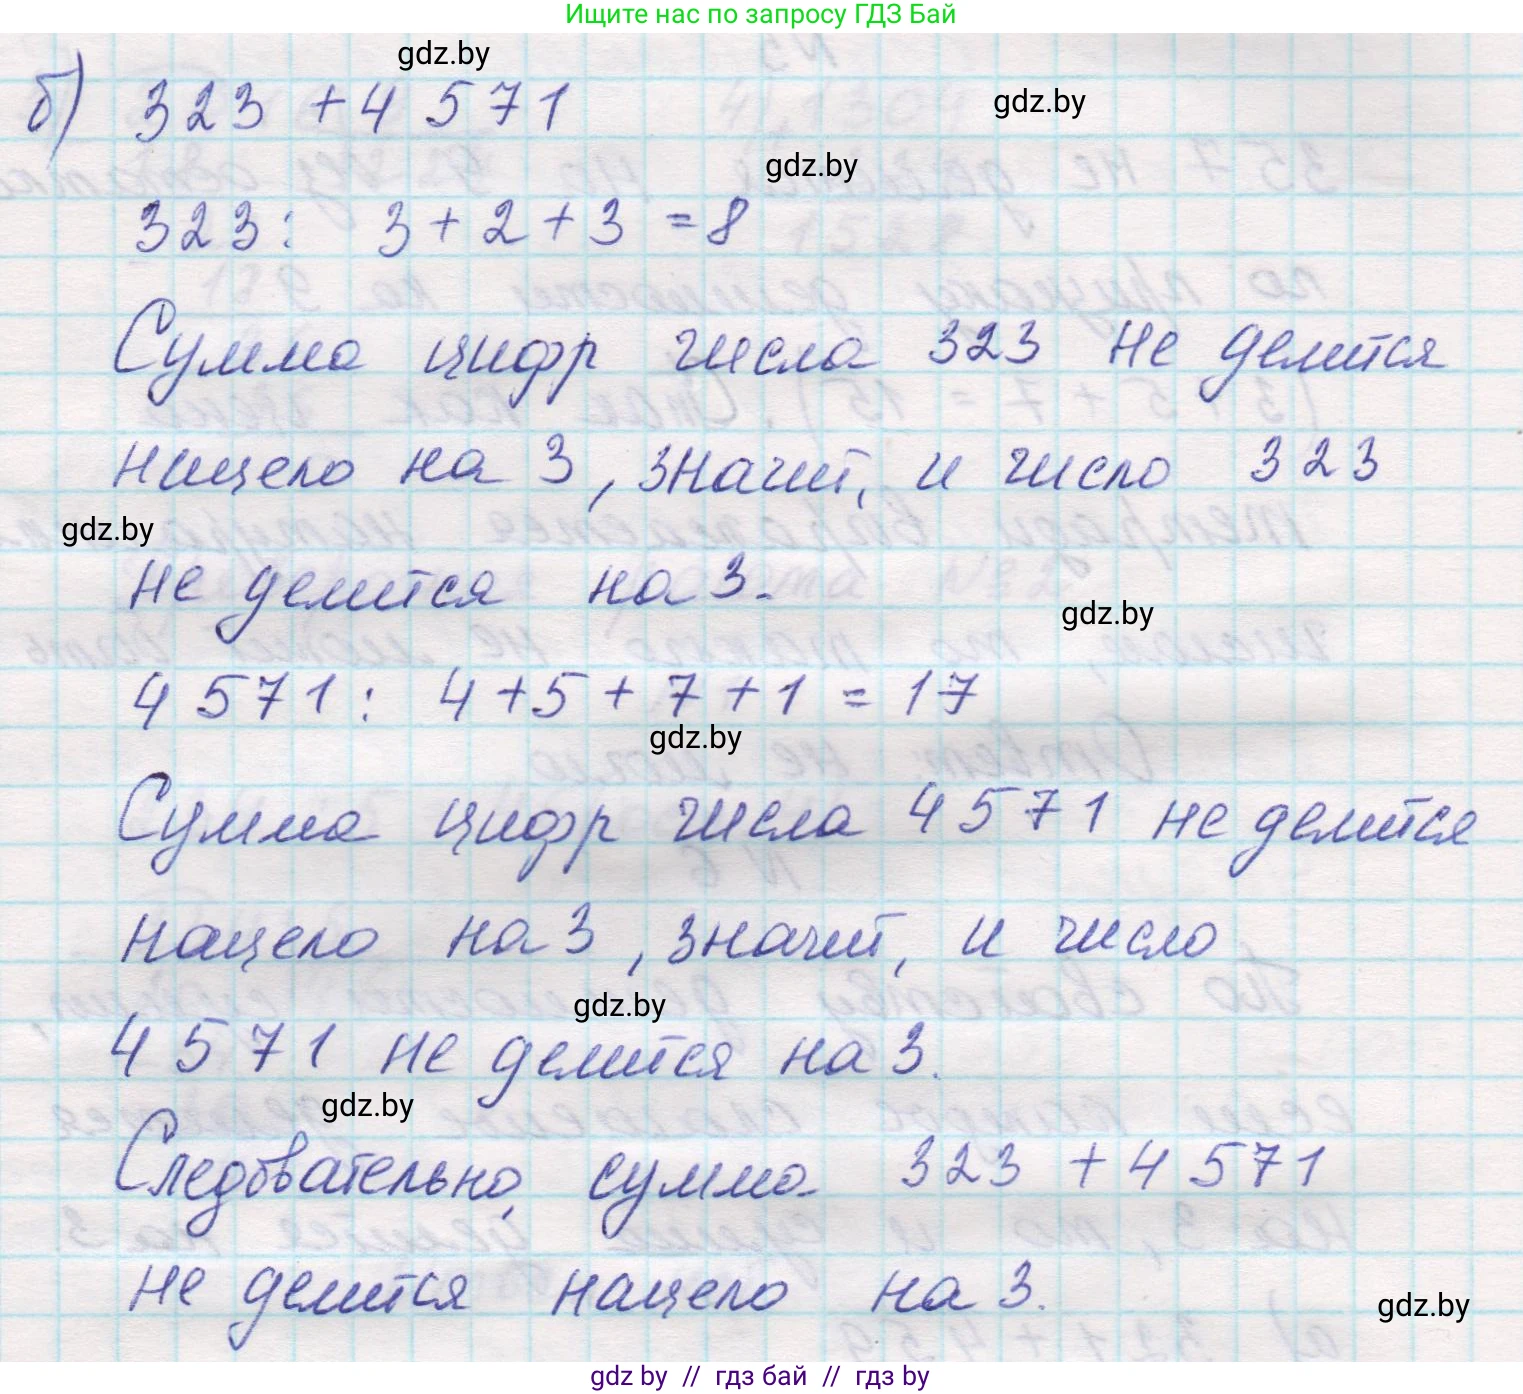 Ищите нас по запросу ГДЗ Бай
gdz.by
б) 323 + 4 571
gdz.by
gdz.by
323: 3 + 2 + 3 = 8
Сумма цифр числа 323 не делится
нацело на 3, значит, и число 323
gdz.by
не делится на 3.
gdz.by
4 571: 4 + 5 + 7 + 1 = 17
gdz.by
Сумма цифр числа 4 571 не делится
нацело на 3, значит, и число
gdz.by
4 571 не делится на 3.
gdz.by
Следовательно, сумма 323 + 4 571
не делится нацело на 3.
gdz.by
gdz by // гдз бай // гдз by